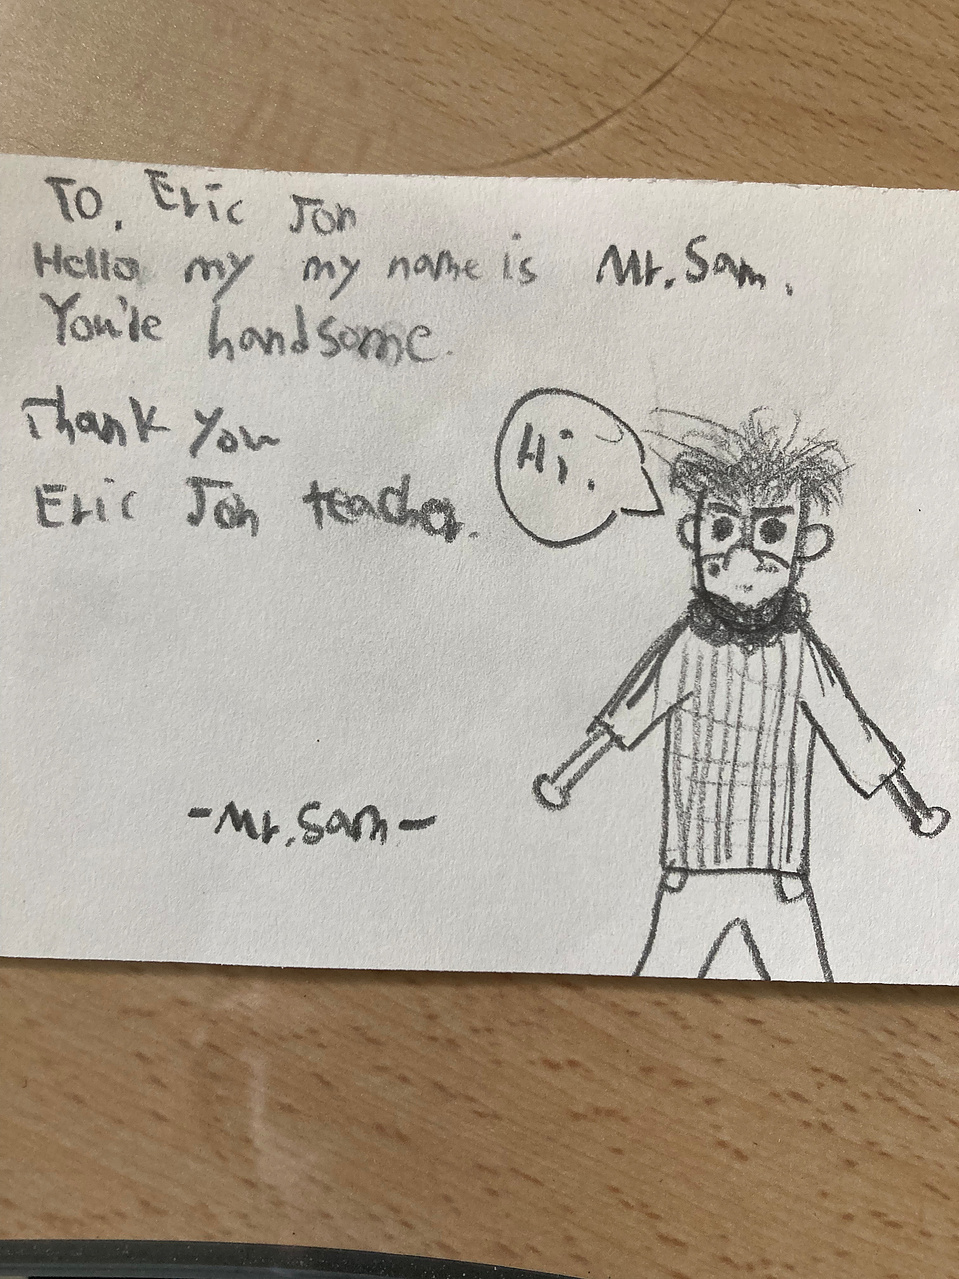 To, Eric Jon
Hello my my name is Mr. Sam.
You're handsome.
Thank you
Eric Jon teacher.
Hi.
-Mr. Sam-